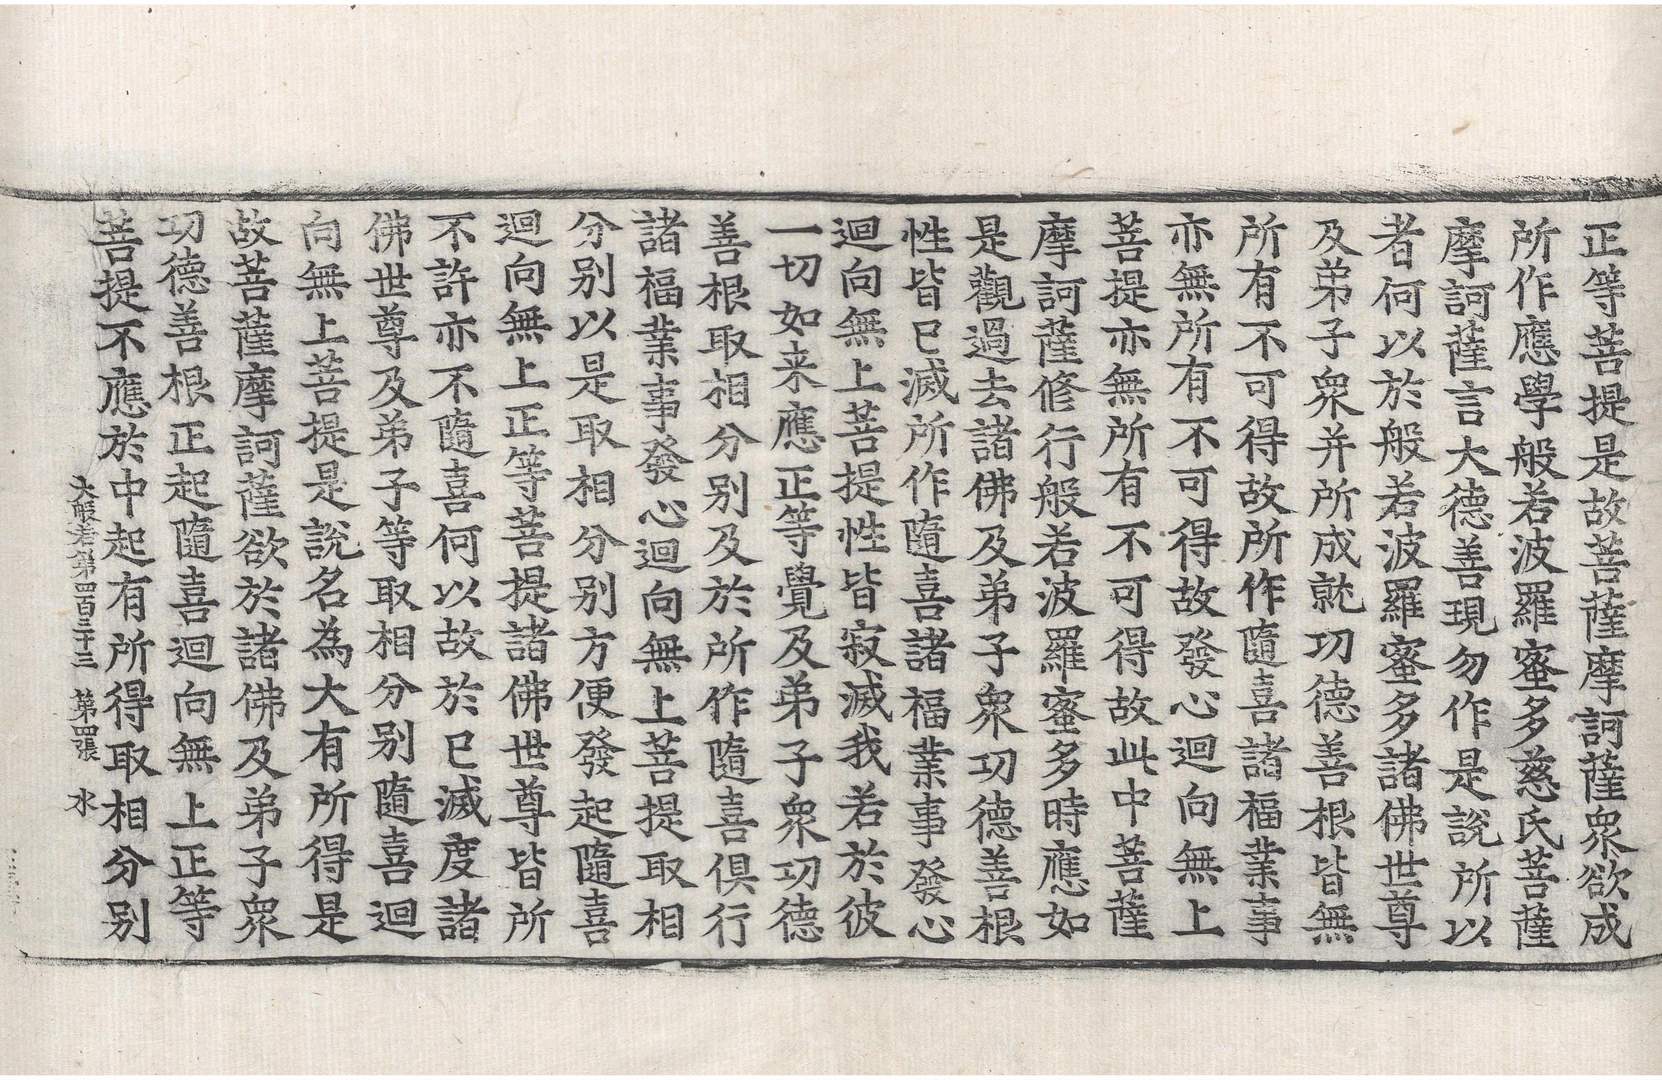 正等菩提是故菩薩摩訶薩衆欲成
所作應學般若波羅蜜多慈氏菩薩
摩訶薩言大德善現勿作是說所以
者何以於般若波羅蜜多諸佛世尊
及弟子衆并所成就功德善根皆無
所有不可得故所作隨喜諸福業事
亦無所有不可得故發心迴向無上
菩提亦無所有不可得故此中菩薩
摩訶薩修行般若波羅蜜多時應如
是觀過去諸佛及弟子衆功德善根
性皆已滅所作隨喜諸福業事發心
迴向無上菩提性皆寂滅我若於彼
一切如来應正等覺及弟子衆功德
善根取相分别及於所作隨喜俱行
諸福業事發心迴向無上菩提取相
分别以是取相分别方便發起隨喜
迴向無上正等菩提諸佛世尊皆所
不許亦不隨喜何以故於已滅度諸
佛世尊及弟子等取相分别隨喜迴
向無上菩提是說名為大有所得是
故菩薩摩訶薩欲於諸佛及弟子衆
功德善根正起隨喜迴向無上正等
菩提不應於中起有所得取相分别
大般若第四百三十三　第四張　水